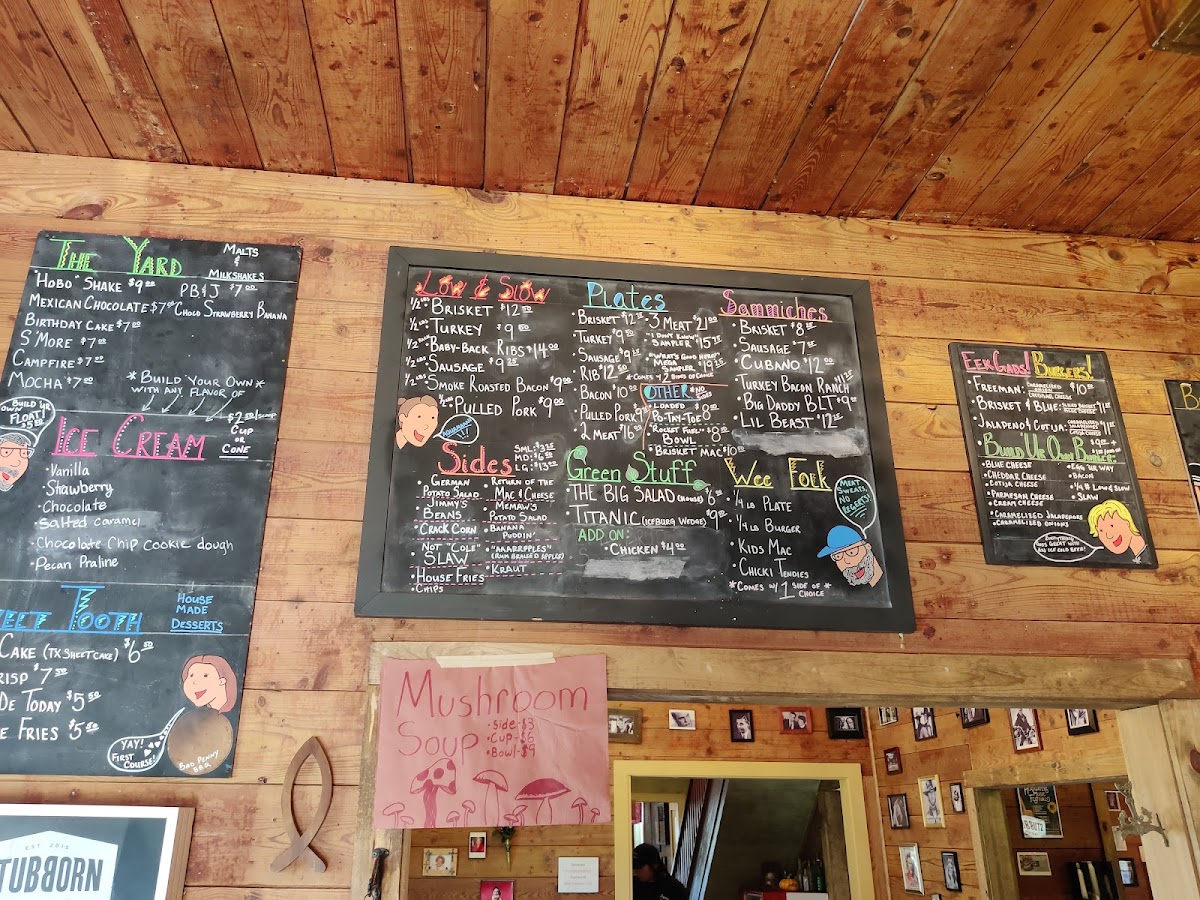 THE YARD
MALTS
&
MILKSHAKES
"HOBO" SHAKE $9.00
PB&J $7.00
MEXICAN CHOCOLATE $7.00
CHOCO STRAWBERRY BANANA
BIRTHDAY CAKE $7.00
S'MORE $7.00
CAMPFIRE $7.00
MOCHA $7.00
*BUILD YOUR OWN*
WITH ANY FLAVOR OF
BUILD 'UR
OWN
FLOAT!
ICE CREAM
CUP
OR
CONE
·Vanilla
·Strawberry
·Chocolate
·Salted caramel
·Chocolate Chip cookie dough
·Pecan Praline
EET TOOTH
HOUSE
MADE
DESSERTS
CAKE (TX SHEET CAKE) $6.50
RISP $7.50
DE TODAY $5.50
E FRIES $5.50
YAY!
FIRST
COURSE!
BAD PENNY
LOW & SLOW
½ LBS ·BRISKET $12.50
½ LBS ·TURKEY $9.50
½ LBS ·BABY-BACK RIBS $14.00
½ LBS ·SAUSAGE $9.25
½ LBS ·SMOKE ROASTED BACON $9.00
½ LBS ·PULLED PORK $9.00
Sides
SML: $3.25
MD: $6.50
LG: $13.00
·GERMAN
POTATO SALAD
·JIMMY'S
BEANS
·CRACK CORN
·NOT "COLE"
SLAW
·HOUSE FRIES
·CHIPS
·RETURN OF THE
MAC & CHEESE
·MEMAW'S
POTATO SALAD
·BANANA
PUDDIN'
·"AAARRPPLES"
(RUM BRAISED APPLES)
·KRAUT
Plates
·BRISKET
·TURKEY
·SAUSAGE
·RIB $12.50
·BACON $10.00
·PULLED PORK
·2 MEAT $16.00
·3 MEAT $21.00
·"I DON'T KNOW"
SAMPLER $15.75
·"WHAT'S GOOD HERE?"
MEGA
SAMPLER $19.25
*COMES W/ 2 SIDES OF CHOICE
OTHER *NO
SIDES
·LOADED
PO-TAY-TOE $8.00
·"ROCKET FUEL"
BOWL $8.00
·BRISKET MAC $10.00
Green Stuff
·THE BIG SALAD (HOUSE) $6.50
·TITANIC (ICEBURG WEDGE) $9.00
ADD ON:
·CHICKEN $4.00
Sammiches
·BRISKET $8.50
·SAUSAGE $7.50
·CUBANO $12.00
·TURKEY BACON RANCH $11.25
·BIG DADDY BLT $9.00
·LIL BEAST $12.50
Wee Folk
·¼ LB PLATE
·¼ LB BURGER
·KIDS MAC
·CHICKI TENDIES
*COMES W/ 1 SIDE OF*
CHOICE
MEAT
SWEATS,
NO
REGERTS!
EEK GADS! BURGERS!
·FREEMAN: CARAMELIZED ONION CHEDDAR CHEESE $10.50
·BRISKET & BLUE:
·JALAPENO & COTIJA:
BUILD 'UR OWN BURGER:
·BLUE CHEESE
·CHEDDAR CHEESE
·COTIJA CHEESE
·PARMESAN CHEESE
·CREAM CHEESE
·CARAMELIZED JALAPENOS
·CARAMELIZED ONIONS
·EGG 'UR WAY
·BACON
·¼ # LOW & SLOW
·SLAW
EVERYTHING
GOES GREAT WITH
AN ICE COLD BEER!
Mushroom
Soup
·Side-$3
·Cup-$6
·Bowl-$9
EST. 2015
TUBBORN